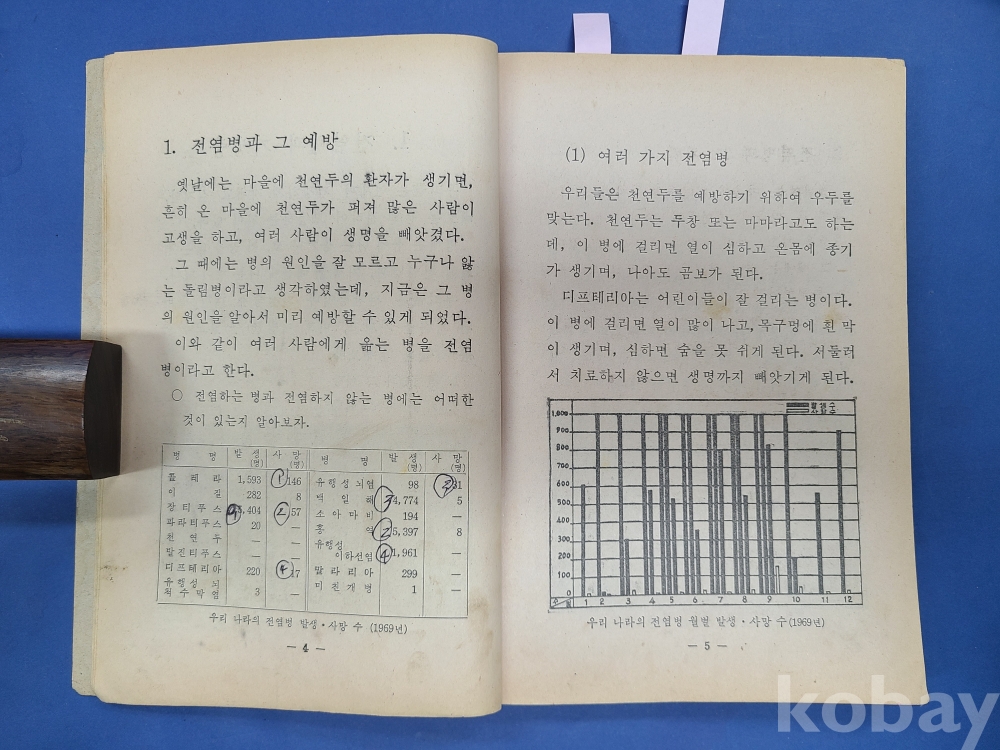 1. 전염병과 그 예방
옛날에는 마을에 천연두의 환자가 생기면,
흔히 온 마을에 천연두가 퍼져 많은 사람이
고생을 하고, 여러 사람이 생명을 빼앗겼다.
그 때에는 병의 원인을 잘 모르고 누구나 앓
는 돌림병이라고 생각하였는데, 지금은 그 병
의 원인을 알아서 미리 예방할 수 있게 되었다.
이와 같이 여러 사람에게 옮는 병을 전염
병이라고 한다.
○ 전염하는 병과 전염하지 않는 병에는 어떠한
것이 있는지 알아보자.
병 명 발 생 (명) 사 망 (명)
콜 레 라 1,593 ① 146
이 질 282 8
장 티 푸 스 ④ 5,404 ② 57
파라티푸스 20 —
천 연 두 — —
발진티푸스 — —
디프테리아 220 ④ 17
유행성 뇌
척수막염 3 —
병 명 발 생 (명) 사 망 (명)
유행성뇌염 98 31
백 일 해 ③ 4,774 5
소 아 마 비 194 —
홍 역 ② 5,397 8
유행성
이하선염 ④ 1,961 —
말 라 리 아 299 —
미 친 개 병 1 —
우리 나라의 전염병 발생·사망 수 (1969년)
— 4 —
(1) 여러 가지 전염병
우리들은 천연두를 예방하기 위하여 우두를
맞는다. 천연두는 두창 또는 마마라고도 하는
데, 이 병에 걸리면 열이 심하고 온몸에 종기
가 생기며, 나아도 곰보가 된다.
디프테리아는 어린이들이 잘 걸리는 병이다.
이 병에 걸리면 열이 많이 나고, 목구멍에 흰 막
이 생기며, 심하면 숨을 못 쉬게 된다. 서둘러
서 치료하지 않으면 생명까지 빼앗기게 된다.
발생수
사망수
1,000
900
800
700
600
500
400
300
200
100
0
수
월 1 2 3 4 5 6 7 8 9 10 11 12
우리 나라의 전염병 월별 발생·사망 수 (1969년)
— 5 —
kobay